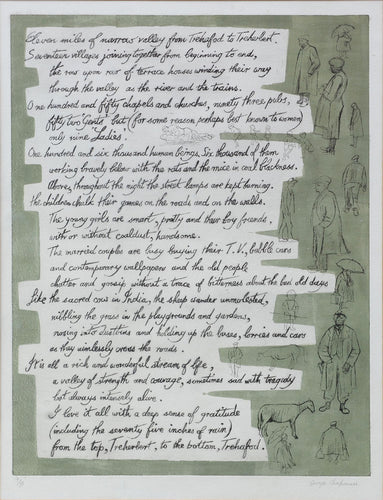 Eleven miles of narrow valley from Trehafod to Treherbert.
Seventeen villages joining together from beginning to end,
the row upon row of terrace houses winding their way
through the valley as the river and the trains.
One hundred and fifty chapels and churches, ninety three pubs,
fifty two 'Gents' but (for some reason perhaps best known to women)
only nine 'Ladies'.
One hundred and six thousand human beings. Six thousand of them
working bravely below with the rats and the mice in coal blackness.
Above, throughout the night the street lamps are kept burning.
The children chalk their games on the roads and on the walls.
The young girls are smart, pretty and their boy friends,
with or without coaldust, handsome.
The married couples are busy buying their T.V., bubble cars
and contemporary wallpapers and the old people
chatter and gossip without a trace of bitterness about the bad old days
Like the sacred cow in India, the sheep wander unmolested,
nibbling the grass in the playgrounds and gardens,
nosing into dustbins and holding up the buses, lorries and cars
as they aimlessly cross the roads.
It's all a rich and wonderful stream of life;
a valley of strength and courage, sometimes sad with tragedy
but always intensely alive.
I love it all with a deep sense of gratitude
(including the seventy five inches of rain)
from the top, Treherbert, to the bottom, Trehafod.
George Chapman